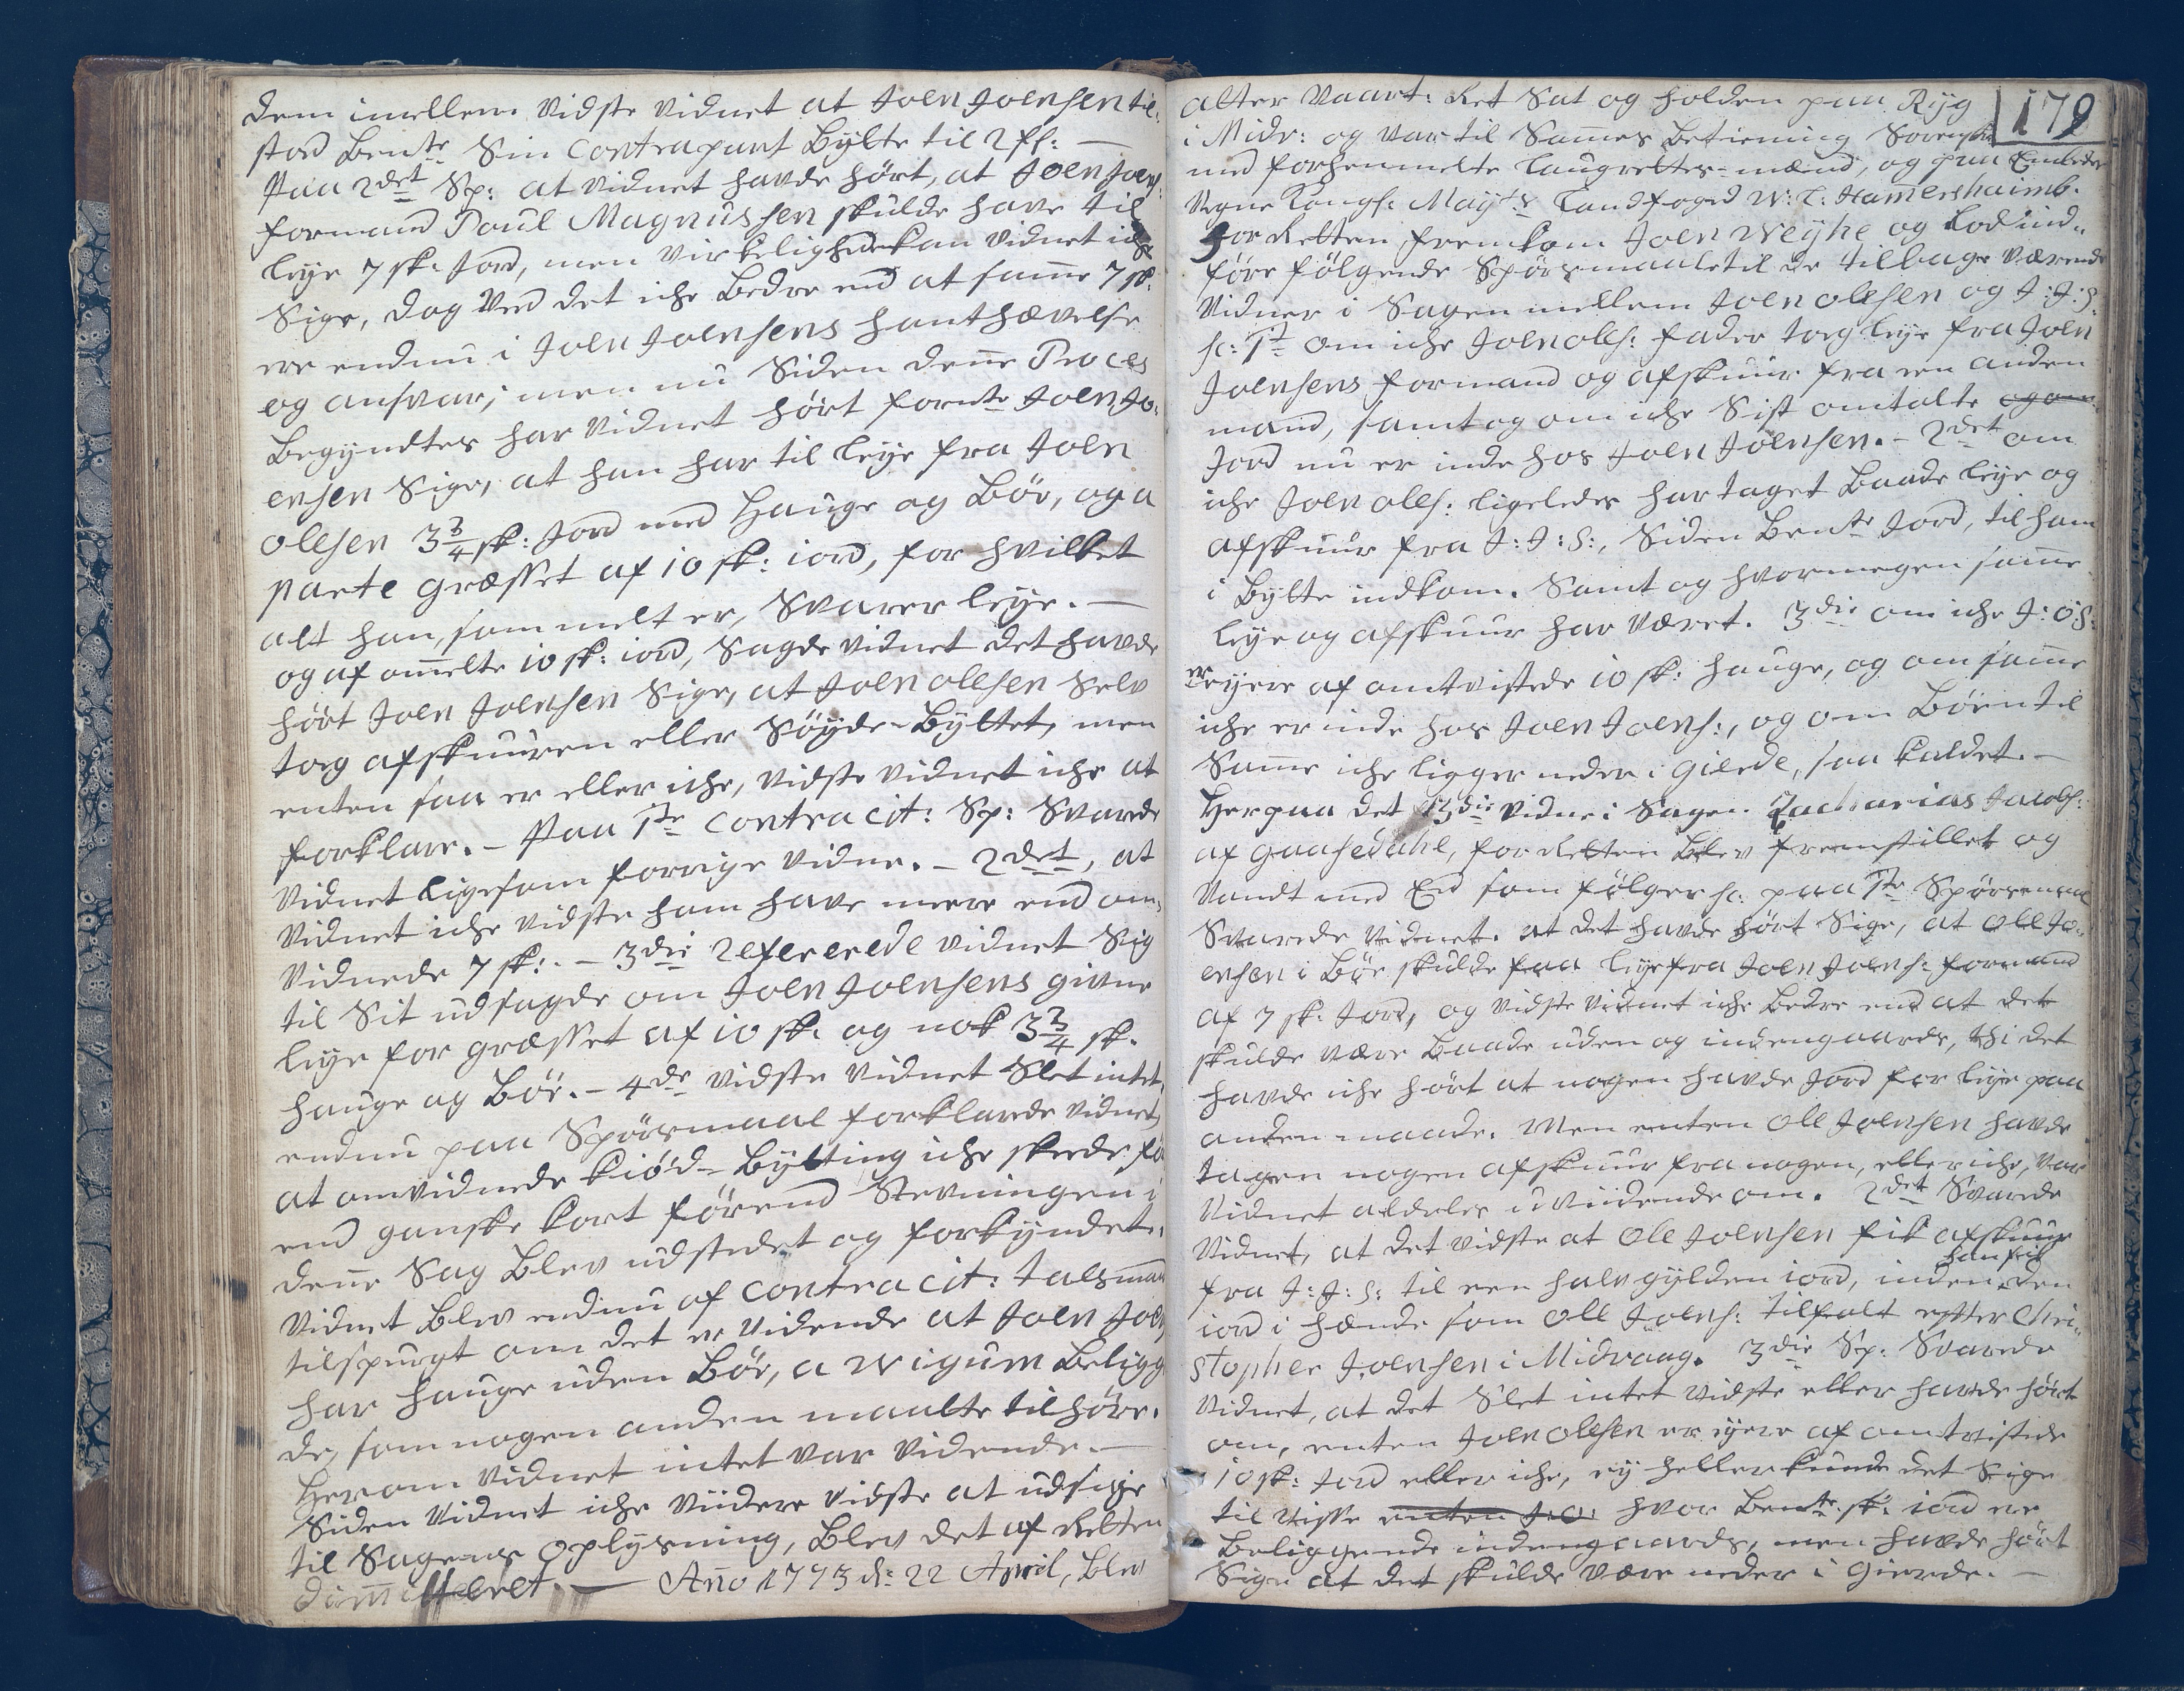 dem imellem vidste vidnet at Joen Joensen til¬
stod Bente Sin Contrapart Bÿlte til 2 sk: —
Paa 2det Sp: at vidnet havde hört, at Joen Joens:
formand Poul Magnussen skulde have til
leÿe 7 sk: Jord, men virkelighed kan vidnet iche
Sige, dog ved det iche Bedre end at samme 7 sk:
er endnu i Joen Joensens hanthævelse
og ansvar; men nu Siden denne Proces
Begÿndtes har vidnet hört fornte Joen Jo¬
ensen Sige, at han har til leÿe fra Joen
Olesen 3¾ sk: Jord med Hauge og Bör, og a
parte græsset af 10 sk: iord, for hvilket
alt han, som melt er, Svarer leÿe. —
og af ommelte 10 sk: iord, Sagde vidnet det havde
hört Joen Joensen Sige, at Joen Olesen Selv
tog afskuuren eller Söÿde-Bÿltet, men
enten saa er eller iche, vidste vidnet iche at
forklare. – Paa 1ste Contra cit: Sp: Svarede
vidnet ligesom forrige vidne. – 2det, at
vidnet iche vidste ham have meere end om¬
vidnede 7 sk: – 3die Refererede vidnet Sig
til Sit udsagde om Joen Joensens givne
leÿe for græsset af 10 sk: og nok 3¾ sk.
hauge og Bör. – 4de vidste vidnet Slet intet,
endnu paa Spörsmaal forklarede vidnet,
at omvidnede kiöd-Bÿlting iche skeede fö
end ganske kort förend Stevningen i
denne Sag Blev udstedet og forkÿndet.
Vidnet Blev endnu af Contra cit: talsmand
tilspurgt om det er vidende at Joen Joens
har hauge uden Bör, a Wigum Beligg
de, som nogen anden maatte tilhöre.
Herom vidnet intet var vidende. —
Siden vidnet iche viidere vidste at udsige
til Sagens oplÿsning, Blev det af Retten
dimitteret. — Anno 1773 d: 22 April, Blev
179
atter Vaart: Ret Sat og holden paa Rÿg
i Midv: og var til Sammes Betiening Sorenskr:
med forhenmelte laugrettes-mænd, og paa Embeder
Vegne Kongl: Maÿts Landfoged W: C: Hamershaimb.
For Retten fremkom Joen Weÿhe og lod ind¬
före fölgende Spörsmaale til de tilbage værende
Vidner i Sagen mellem Joen Olesen og J: J: S:
sc: 1st om iche Joen Oles: fader tog leÿe fra Joen
Joensens formand og afskuur fra een anden
mand, samt og om iche Sist omtalte og om
Jord nu er inde hos Joen Joensen. – 2det om
iche Joen Oles: ligeledes har taget Baade leÿe og
afskuur fra J: J: S:, Siden Bente Jord, til ham
i Bÿlte indkom. Samt og hvormegen samme
leÿe og afskuur har været. 3die om iche J: O S:
er eÿere af omtvistede 10 sk: hauge, og om samme
iche er inde hos Joen Joens:, og om Böen til
Samme iche ligger neder i Gierde, saa kaldet. —
Herpaa det 13die vidne i Sagen Zacharias Jacobs:
af Gaasedahl, for Retten Blev fremstillet og
Vandt med Eed som fölger sc: paa 1ste Spörsmaal
Svarede vidnet. at det havde hört Sige, at Ole Jo¬
ensen i Bör skulde faa leÿe fra Joen Joens: formand
af 7 sk: Jord, og vidste vidnet iche Bedre end at det
skulde være Baade uden og indengaards, thi det
havde iche hört at nogen havde Jord for leÿe paa
anden maade. Men enten Ole Joensen havde
tagen nogen afskuur fra nogen, eller iche, var
Vidnet aldeles uviidende om. 2det Svarede
Vidnet, at det vidste at Ole Joensen fik afskuur
fra J: J: S: til een halv gÿlden iord, inden han fik den
iord i hænde som Ole Joens: tilfalt efter Chri¬
stopher Joensen i Midvaag. 3die Sp: Svarede
Vidnet, at det Slet intet vidste eller havde hört
om, enten Joen Olesen er eÿere af omtvistede
10 sk: Jord eller iche, eÿ heller kunde det Sige
til visse enten J: O: hvor Bente sk: iord er
Beliggende indengaards, men havde hört
Sige at det skulde være neder i Gierde. —